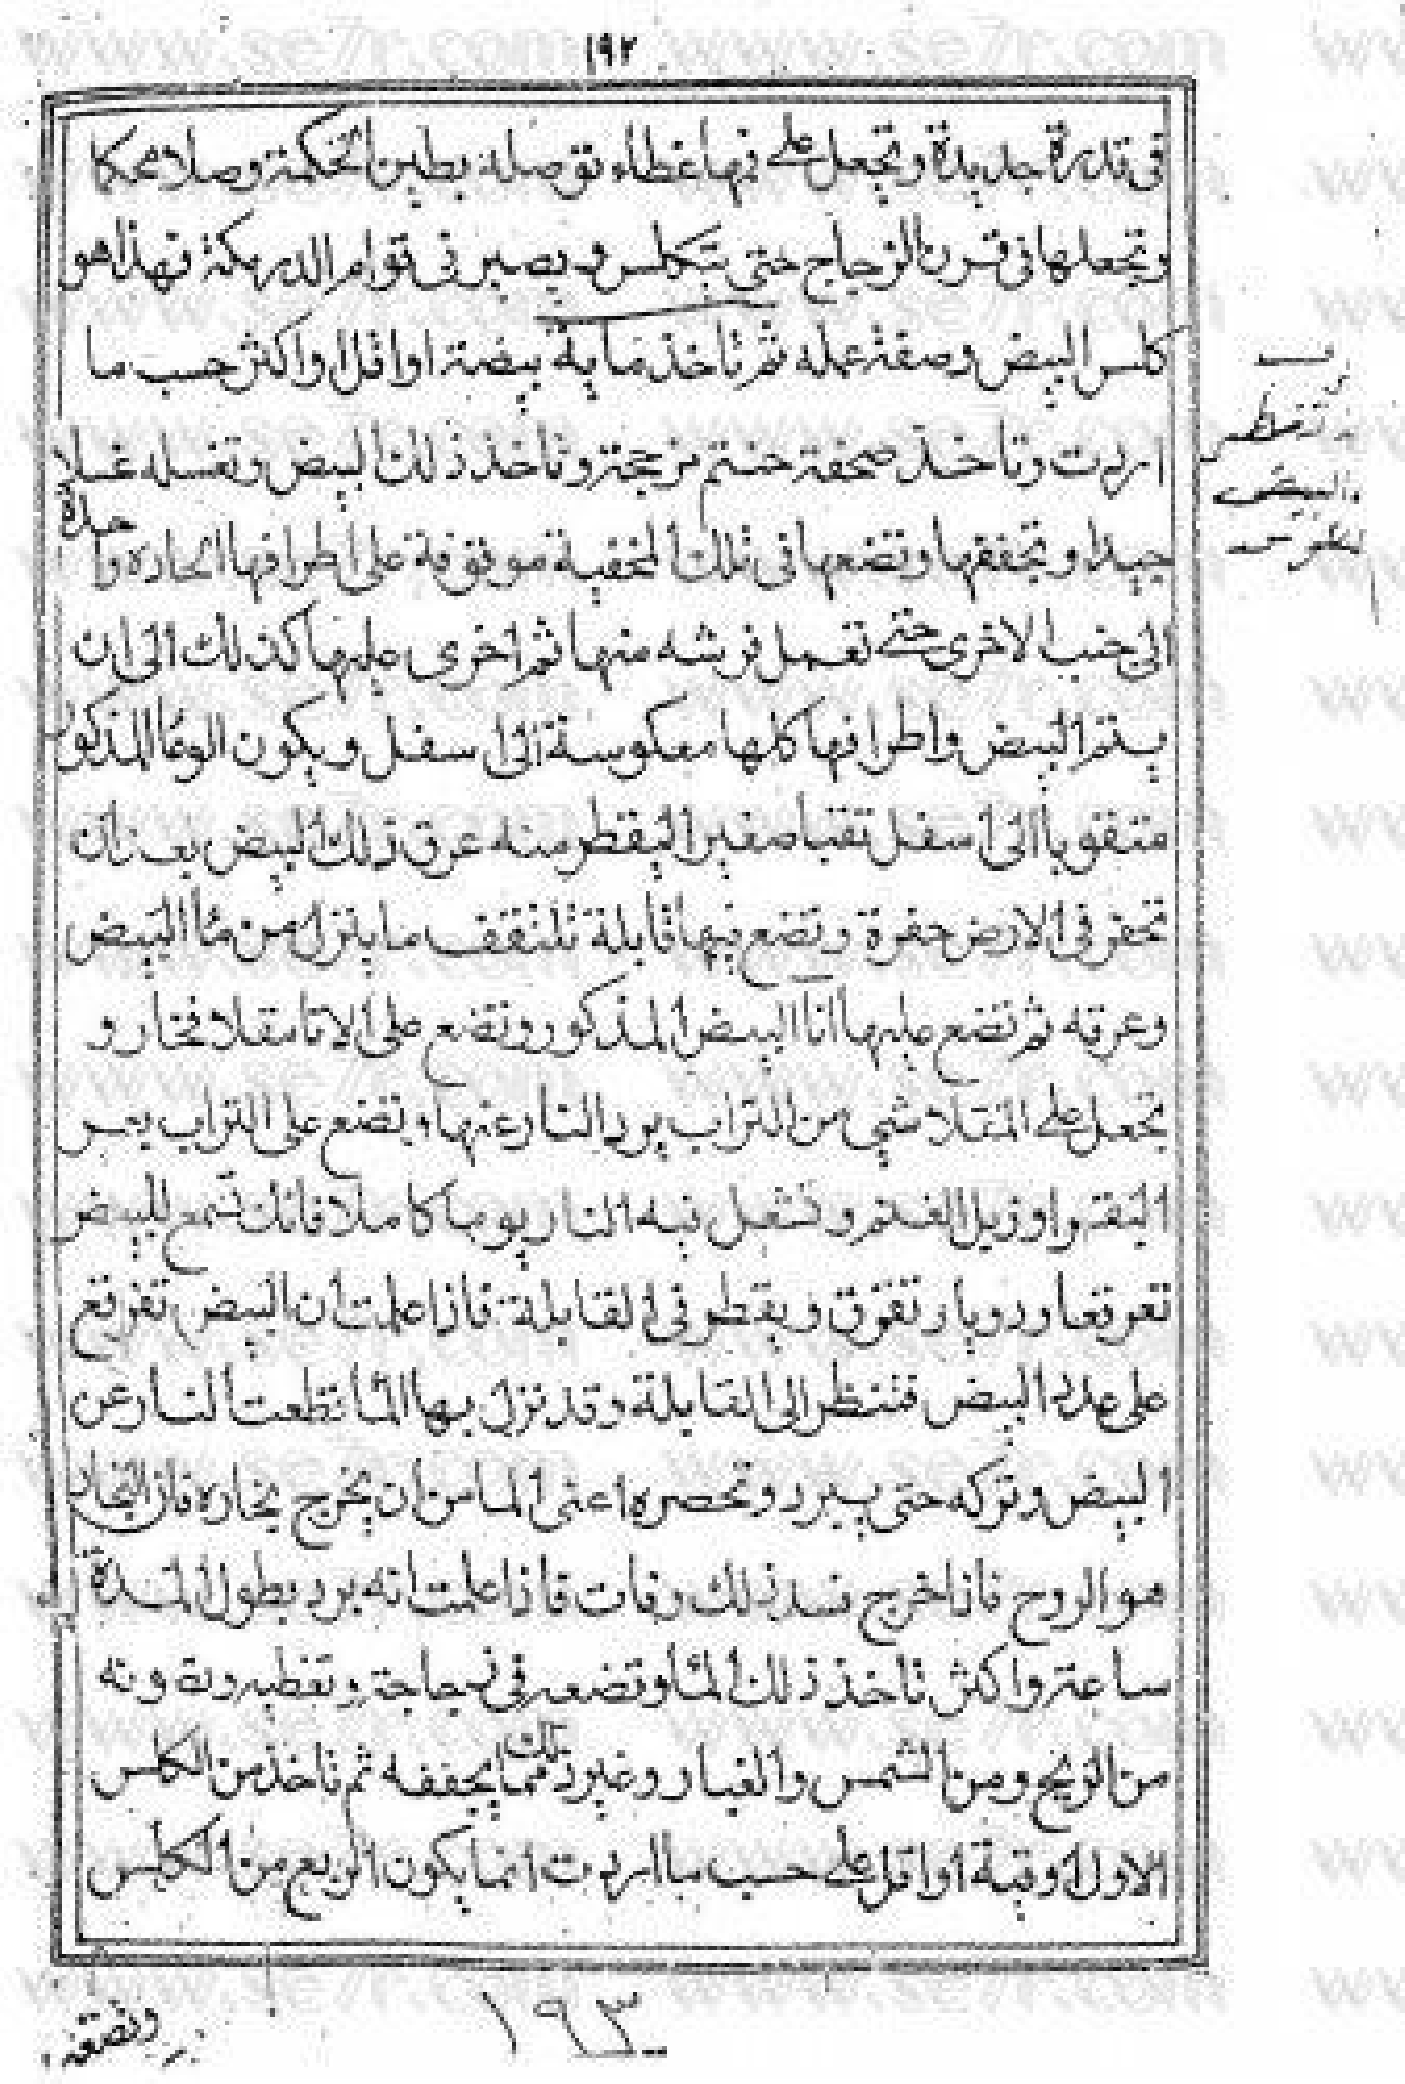 ١٩٢
فى قدرة جديدة وتجعل على فمها غطاء توصله بطين الحكمة وصلا محكا
وتجعلها فى فرن الزجاج حتى يتكلس ويصير فى قوام الدرمكة فهذا هو
كلس البيض وصفة عمله ثم تاخذ ماية بيضة او اقل او اكثر حسب ما
اردت وتاخذ صحفة حنتم مزججة وتاخذ ذلك البيض وتغسله غسلا
جيدا وتجففها وتضعها فى تلك موقوفة على اطرافها الحادة واحدة
الى جنب الاخرى حتى تعمل فرشه منها ثم اخرى عليها كذلك الى ان
يتم البيض واطرافها كلها معكوسة الى اسفل ويكون الوعا المذكور
مثقوبا الى اسفل ثقبا صغيرا ليقطر منه عرق ذلك البيض بعد ان
تحفر فى الارض حفرة وتضع فيها قابلة تلتقف ما ينزل من ما البيض
وعرقه ثم تضع عليها انا البيض المذكور وتضع على الانا مقلا فخار و
تجعل على المقلا شى من التراب يرد النار عنها وتضع على التراب بعر
البقر او زبل الغنم وتشعل فيه النار يوما كاملا فانك تسمع للبيض
تفرقعا ودويا وتفرق ويقطر فى القابلة فاذا علمت ان البيض تفرقع
على عدد البيض فتنظر الى القابلة وقد نزل بها الما قطعت النار عن
البيض وتركه حتى يبرد وتحصره اعنى الما من ان يخرج بخاره فان البخار
هو الروح فاذا خرج فسد ذلك ومات فاذا علمت انه برد بطول المدة
ساعة واكثر تاخذ ذلك الما وتضعه فى زجاجة وتغطيه وتصونه
من الريح ومن الشمس والغبار وغير ذلك مما يجففه ثم تاخذ من الكلس
الاول اوقية او اقل على حسب ما اردت انما يكون الربع من الكلس
تقطير
البيض
وتضعه
١٩٣
www.se7r.com